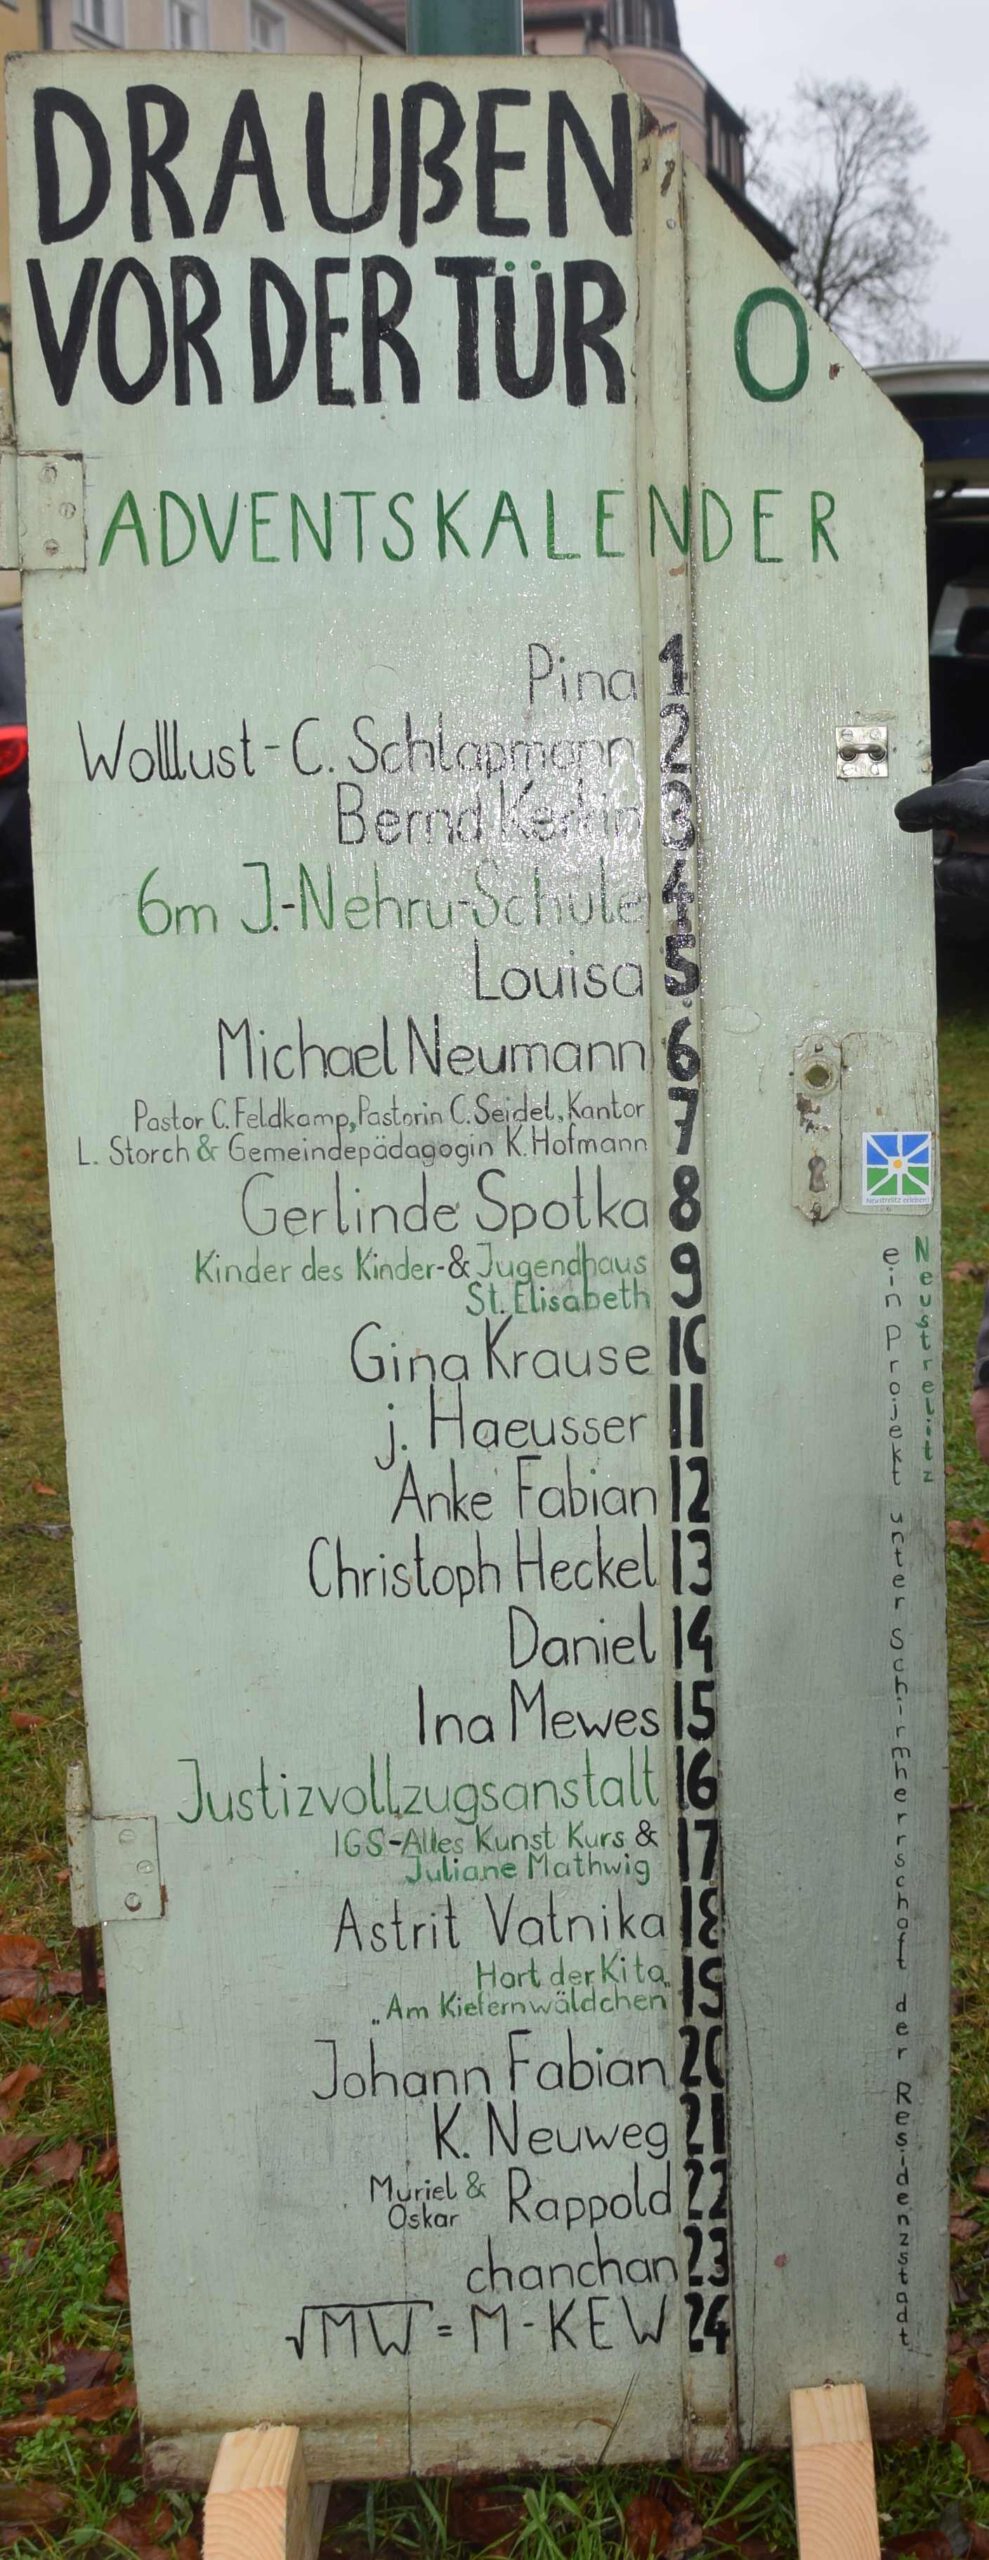 DRAUßEN
VOR DER TÜR O
ADVENTSKALENDER
Pina 1
Wolllust - C. Schlapmann 2
Bernd Kerkin 3
6m J.-Nehru-Schule 4
Louisa 5
Michael Neumann 6
Pastor C. Feldkamp, Pastorin C. Seidel, Kantor 7
L. Storch & Gemeindepädagogin K. Hofmann
Gerlinde Spotka 8
Kinder des Kinder-& Jugendhaus 9
St. Elisabeth
Gina Krause 10
j. Haeusser 11
Anke Fabian 12
Christoph Heckel 13
Daniel 14
Ina Mewes 15
Justizvollzugsanstalt 16
IGS-Alles Kunst Kurs & 17
Juliane Mathwig
Astrit Vatnika 18
Hort der Kita 19
„Am Kiefernwäldchen"
Johann Fabian 20
K. Neuweg 21
Muriel & Oskar Rappold 22
chanchan 23
√MW = M-KEW 24
Neustrelitz erleben!
ein Projekt unter Schirmherrschaft der Residenzstadt
Neustrelitz